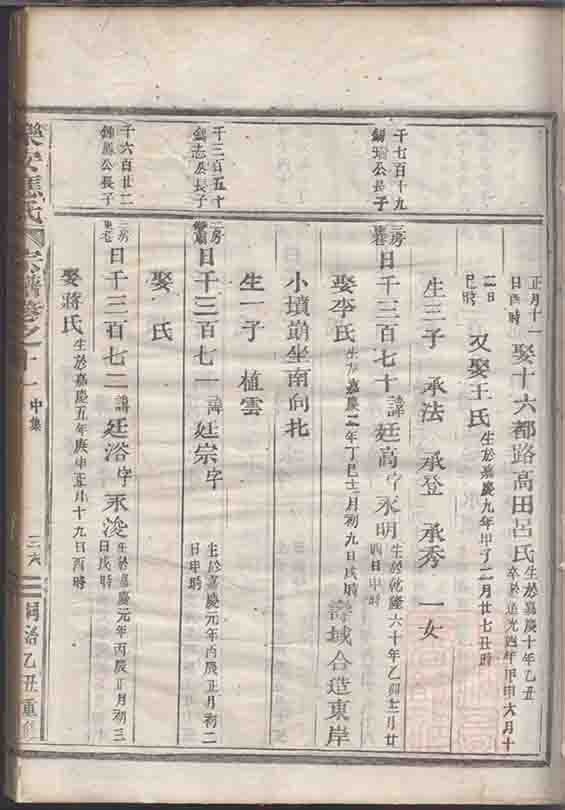 正月十一
日酉時
娶十六都路高田呂氏
生於嘉慶十年乙丑
卒於道光四年甲申六月十
二日
巳時
又娶王氏
生於嘉慶九年甲子二月廿七丑時
生三子 承法 承登 承秀 一女
千七百十九
公長子
三房
日千三百七十
諱
廷高
字
永明
生於乾隆六十年乙卯
月廿
四日申時
娶李氏
生於嘉慶二年丁巳十二月初九日戌時
壽域合造東岸
小墳前坐南向北
生一子 植雲
千三百五十
公長子
二房
日千三百七一
諱
廷宗
字
生於嘉慶元年丙辰正月初二
日申時
娶 氏
千六百廿二
公長子
三房
日千三百七二
諱
廷浴
字
永浚
生於嘉慶元年丙辰正月初三
日戌時
娶蔣氏
生於嘉慶五年庚申正月十九日酉時
樂安蔣氏宗譜卷之十一
中集
三六
同治乙丑重修